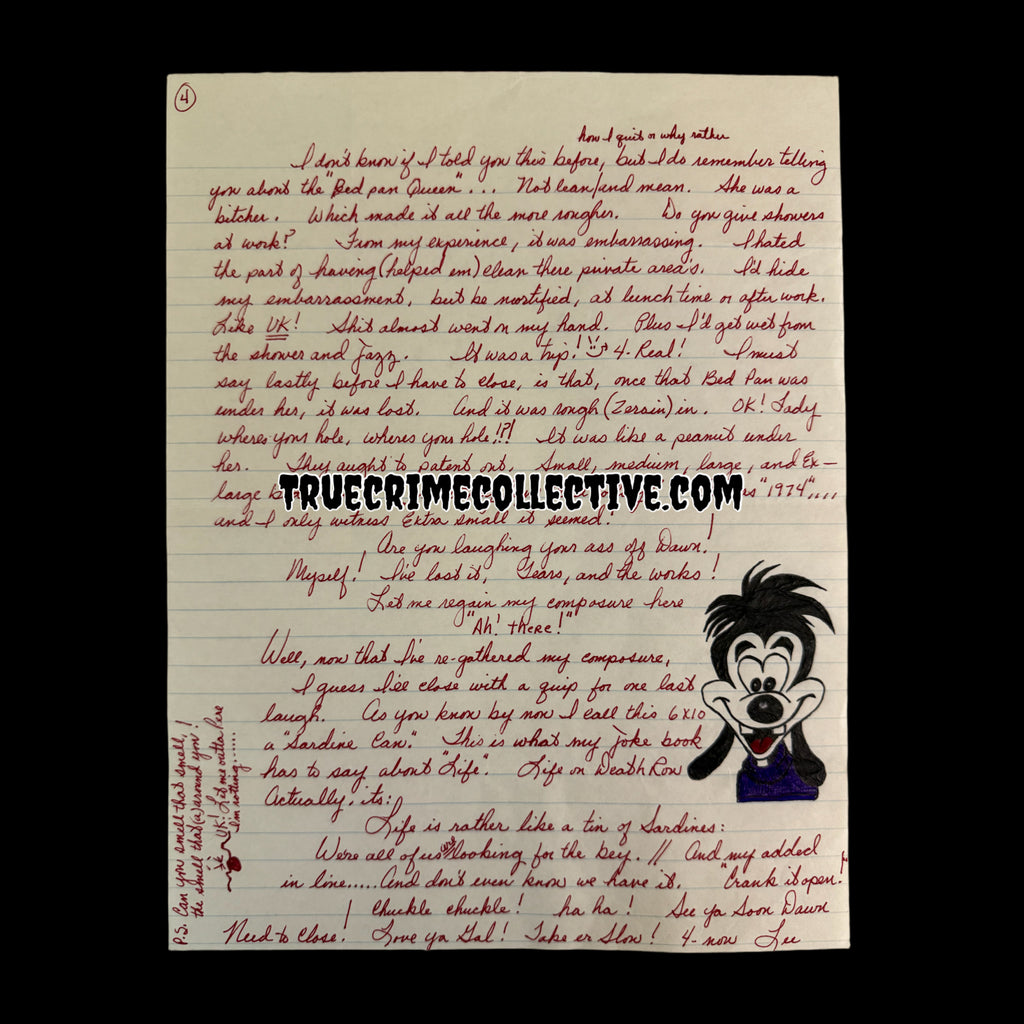 4
how I quit or why rather
I don't know if I told you this before, but I do remember telling
you about the "Bed pan Queen"... Not lean/and mean. She was a
bitcher. Which made it all the more rougher. Do you give showers
at work? From my experience, it was embarrassing. I hated
the part of having (helped em) clean there private area's. I'd hide
my embarrassment, but be mortified, at lunch time or after work.
Like UK! Shit almost went on my hand. Plus I'd get wet from
the shower and Jazz. It was a trip! 4-Real! I must
say lastly before I have to close, is that, once that Bed Pan was
under her, it was lost. And it was rough (Zeroin) in. OK! Lady
wheres your hole, wheres your hole!?! It was like a peanut under
her. They aught to patent out. Small, medium, large, and Ex-
large "1974"....
TRUECRIMECOLLECTIVE.COM
and I only witness Extra small it seemed!
Are you laughing your ass off Dawn!
Myself! I've lost it, Tears, and the works!
Let me regain my composure here
"Ah! there!"
Well, now that I've re-gathered my composure,
I guess I'll close with a quip for one last
laugh. As you know by now I call this 6x10
a "Sardine Can". This is what my Joke book
has to say about "Life". Life on Death Row
Actually, its:
Life is rather like a tin of Sardines:
We're all of us looking for the key. // And my added
in line.....And don't even know we have it. "Crank it open!"
Chuckle chuckle! ha ha! See ya Soon Dawn
Need to Close! Love ya Gal! Take er Slow! 4-now Lee
P.S. Can you smell that smell,
the smell that(a) around you!
UK! Let me outta Here
I'm rotting......